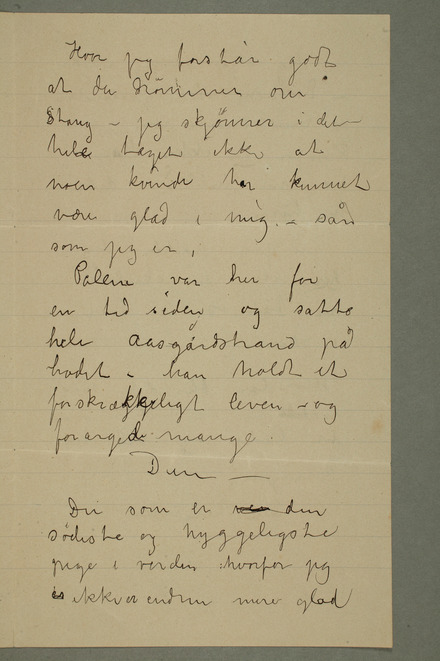 Hvor jeg forstår godt
at du drømmer om
Stang – jeg skjønner i det
hele taget ikke at
noen kvinde har kunnet
være glad i mig – sån
som jeg er,
Palene var her for
en tid siden og satte
hele Aasgårdstrand på
hodet – han holdt et
forskrækkeligt leven – og
forarged mange.
Din –
Du som er den
sødeste og hyggeligste
pige i verden hvorfor jeg
ikke er endnu mere glad